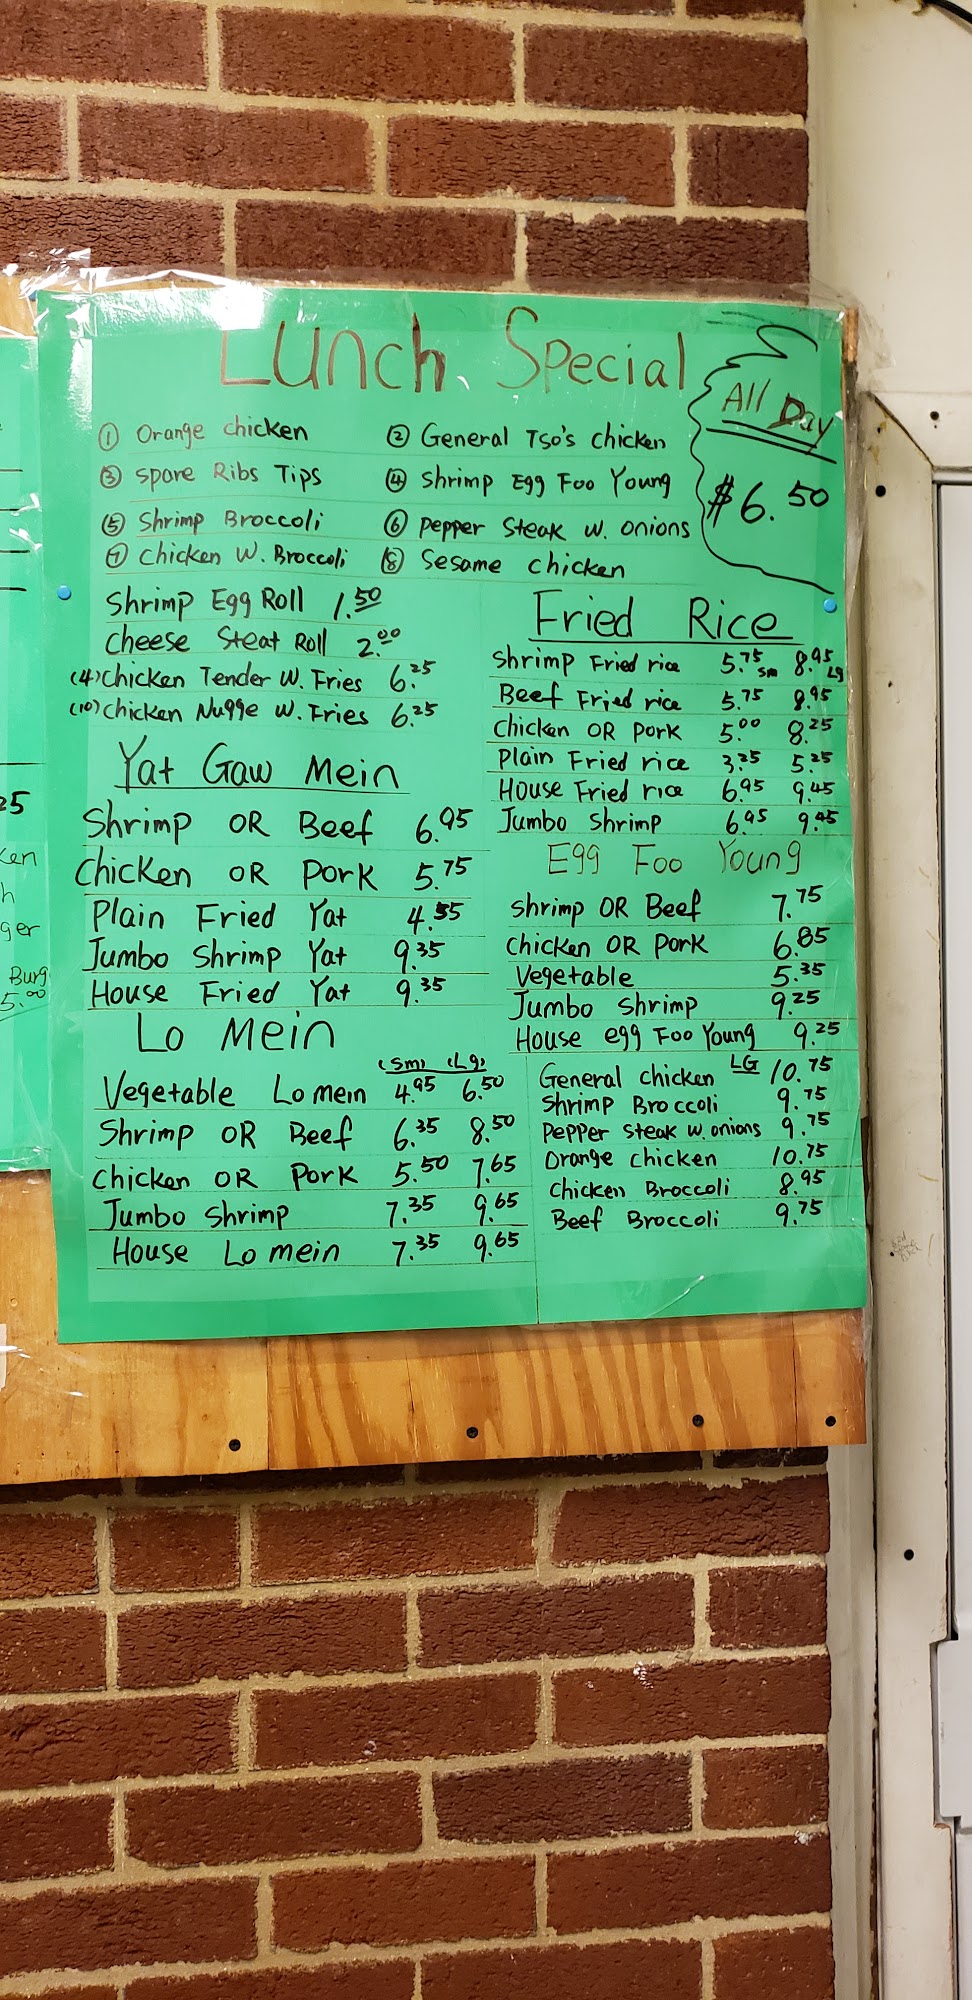 Lunch Special
All Day
$6.50
① Orange chicken ② General Tso's chicken
③ Spare Ribs Tips ④ Shrimp Egg Foo Young
⑤ Shrimp Broccoli ⑥ Pepper Steak w. onions
⑦ Chicken W. Broccoli ⑧ Sesame chicken
Shrimp Egg Roll 1.50
Cheese Steat Roll 2.00
(4) Chicken Tender W. Fries 6.25
(10) Chicken Nugge W. Fries 6.25
Yat Gaw Mein
Shrimp OR Beef 6.95
Chicken OR Pork 5.75
Plain Fried Yat 4.55
Jumbo Shrimp Yat 9.35
House Fried Yat 9.35
Lo Mein
(Sm) (Lg)
Vegetable Lo mein 4.95 6.50
Shrimp OR Beef 6.35 8.50
Chicken OR Pork 5.50 7.65
Jumbo Shrimp 7.35 9.65
House Lo mein 7.35 9.65
Fried Rice
Shrimp Fried rice 5.75 Sm 8.95 Lg
Beef Fried rice 5.75 8.95
Chicken OR Pork 5.00 8.25
Plain Fried rice 3.25 5.25
House Fried rice 6.95 9.45
Jumbo Shrimp 6.95 9.45
Egg Foo Young
Shrimp OR Beef 7.75
Chicken OR Pork 6.85
Vegetable 5.35
Jumbo Shrimp 9.25
House egg Foo Young 9.25
General chicken LG 10.75
Shrimp Broccoli 9.75
Pepper Steak w. onions 9.75
Orange Chicken 10.75
Chicken Broccoli 8.95
Beef Broccoli 9.75
25
ken
h
ger
Burg
5.00